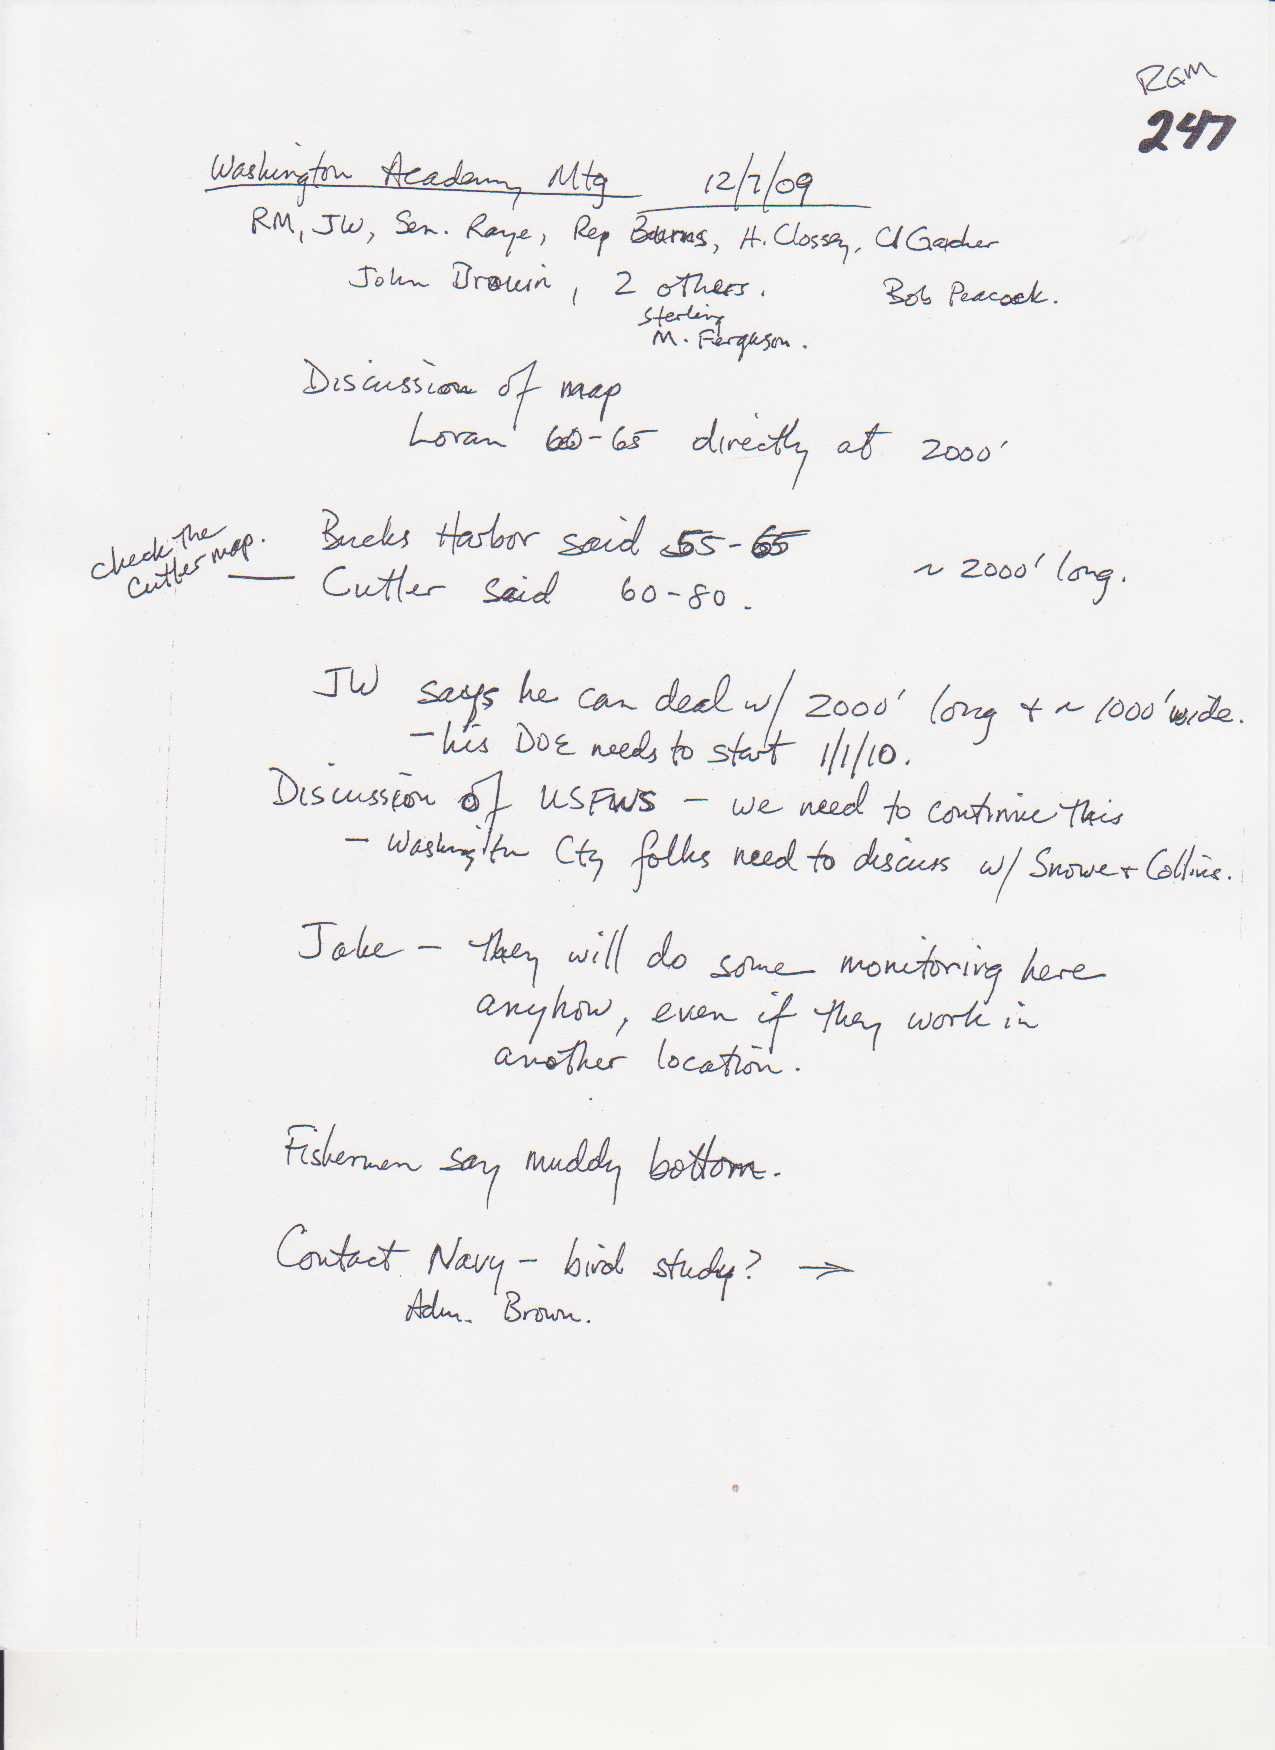 RGM
247
Washington Academy Mtg 12/7/09
RM, JW, Sen. Raye, Rep Burns, H. Clossey, Cl Gardner
John Brown, 2 others. Bob Peacock.
Sterling
M. Ferguson.
Discussion of map
Loran 60-65 directly at 2000'
check the
Cutler map.
Bucks Harbor said 55-65
~ 2000' long.
— Cutler said 60-80.
JW says he can deal w/ 2000' long + ~ 1000' wide.
- his DOE needs to start 1/1/10.
Discussion of USFWS - we need to continue this
- Washington Cty folks need to discuss w/ Snowe + Collins.
Jake - they will do some monitoring here
anyhow, even if they work in
another location.
Fishermen say muddy bottom.
Contact Navy - bird study? →
Adm. Brown.